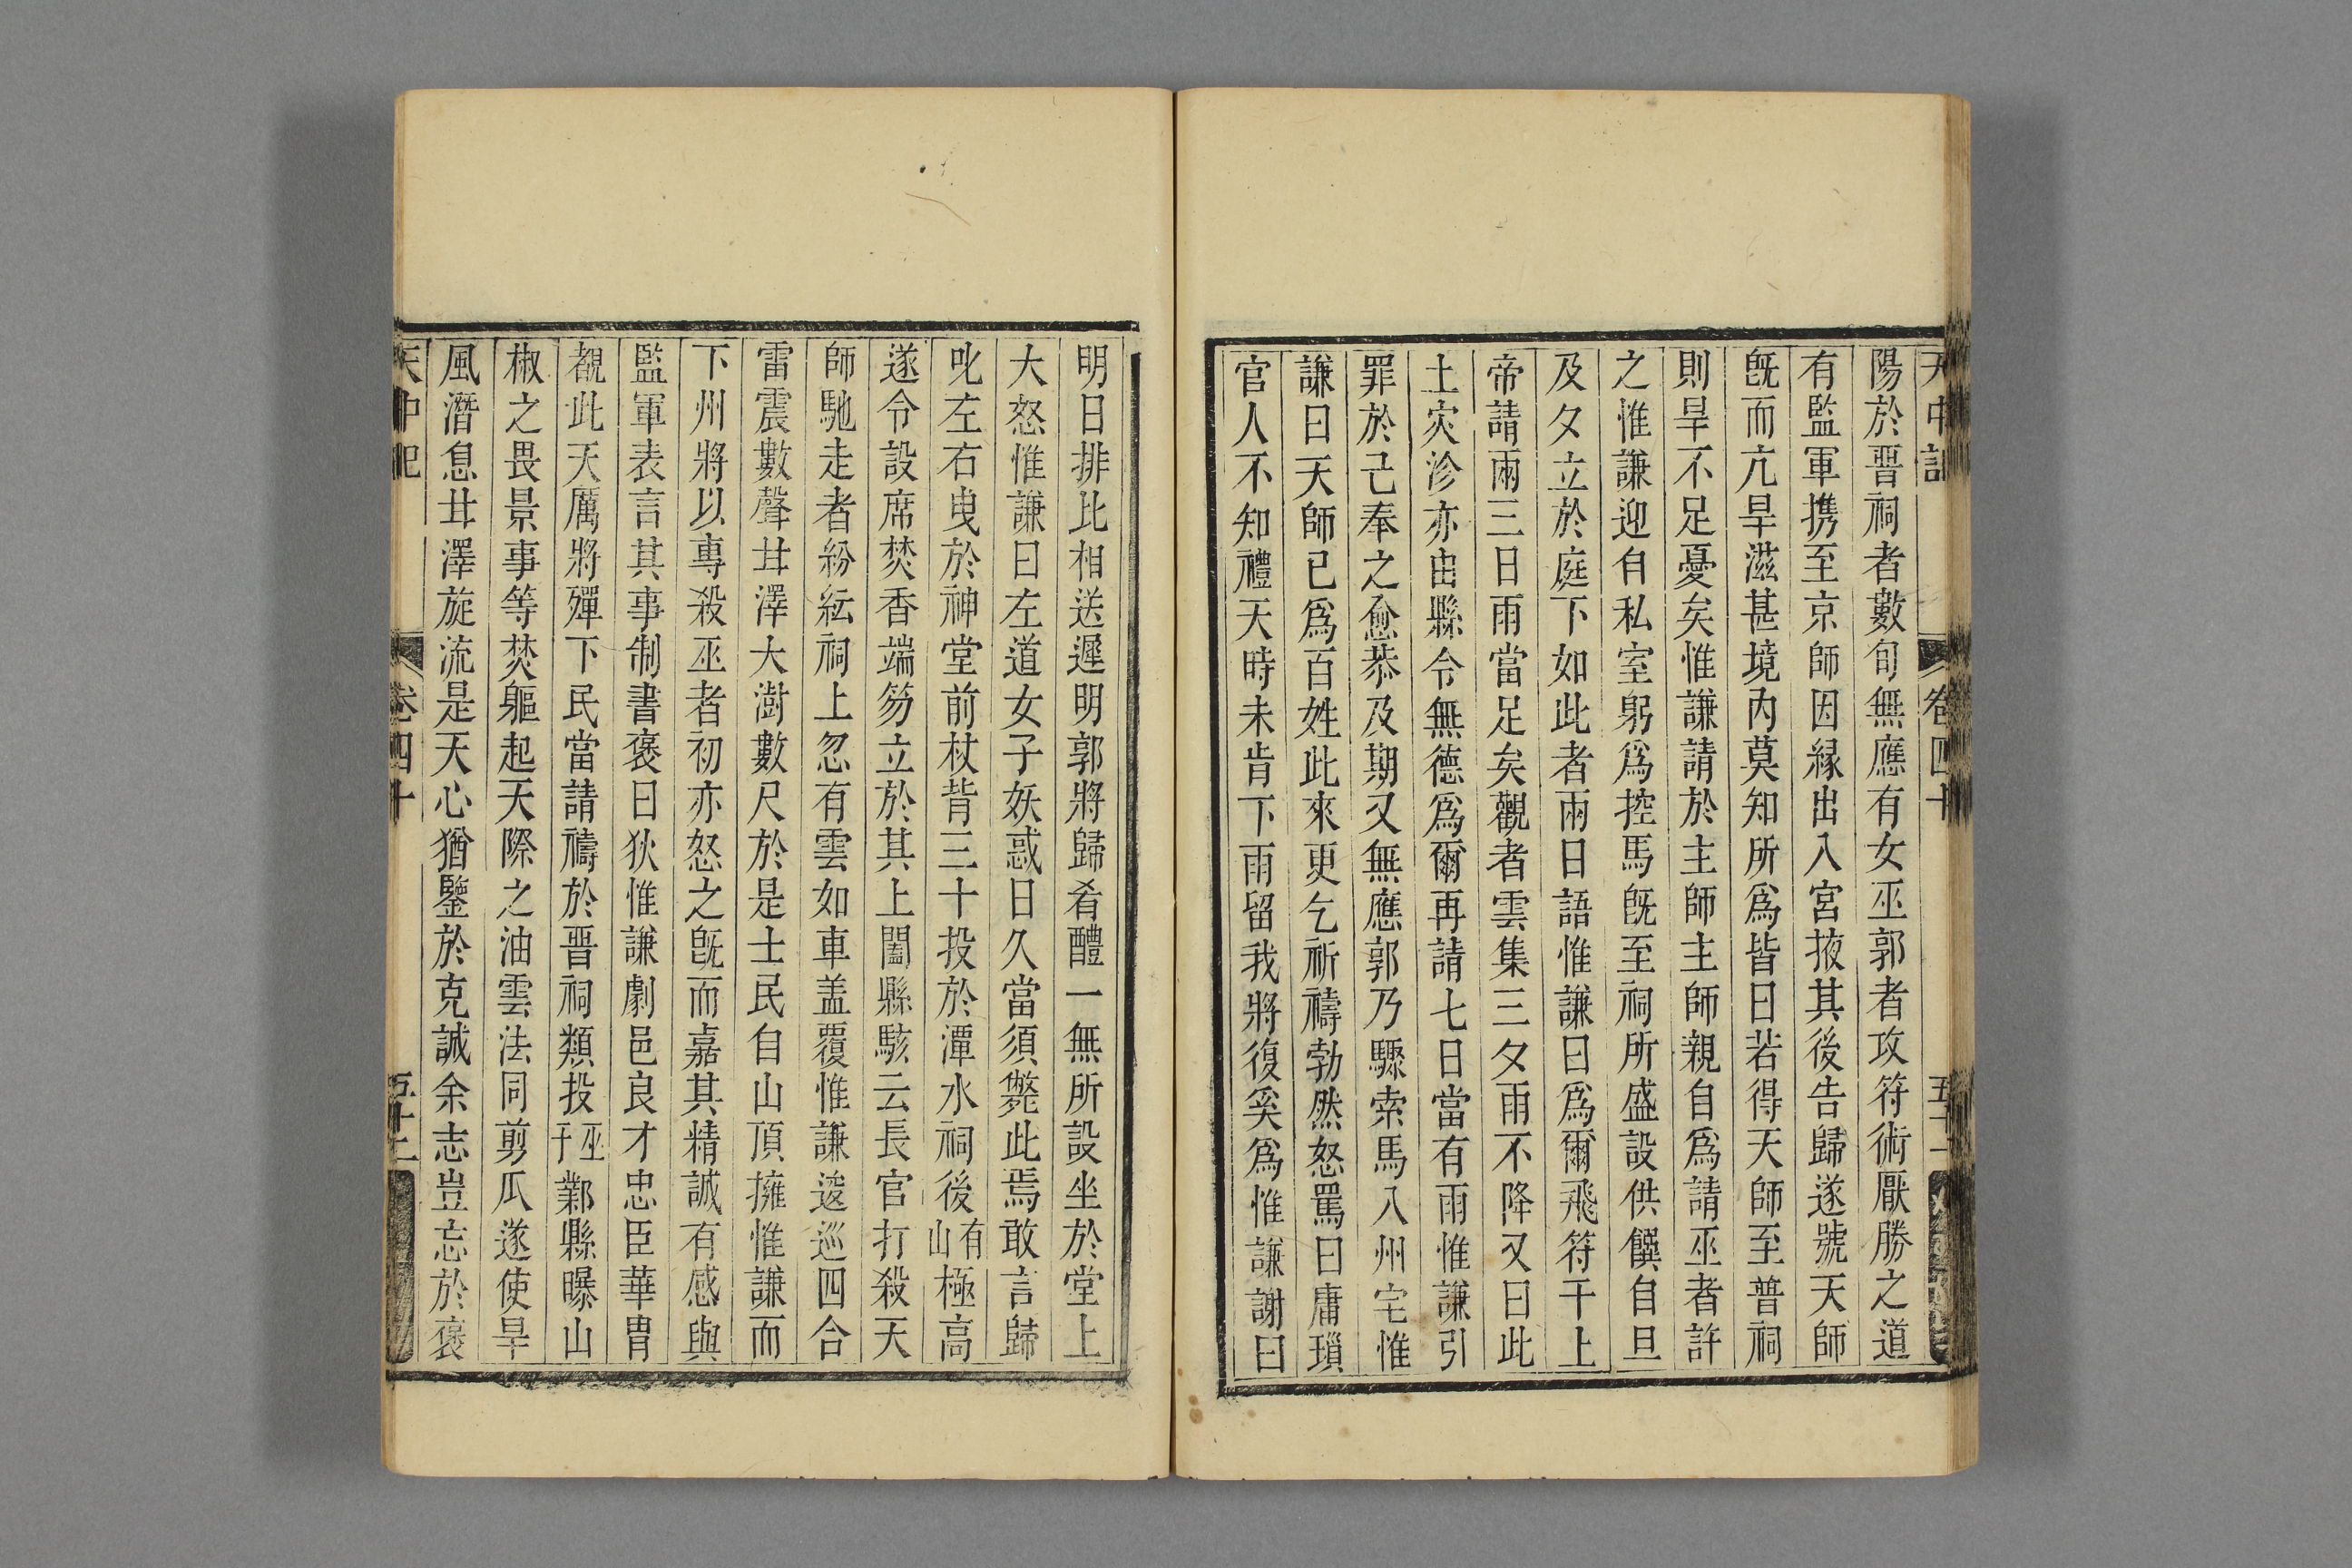 天中記 卷四十
陽於晋祠者數旬無應有女巫郭者攻符術厭勝之道
有監軍携至京師因緣出入宮掖其後告歸遂號天師
旣而亢旱滋甚境內莫知所爲皆曰若得天師至普祠
則旱不足憂矣惟謙請於主師主師親自爲請巫者許
之惟謙迎自私室躬爲控馬旣至祠所盛設供饌自旦
及夕立於庭下如此者兩日語惟謙曰爲爾飛符干上
帝請雨三日雨當足矣觀者雲集三夕雨不降又曰此
土灾沴亦由縣令無德爲爾再請七日當有雨惟謙引
罪於己奉之愈恭及期又無應郭乃驟索馬入州宅惟
謙曰天師已爲百姓此來更乞祈禱勃然怒罵曰庸瑣
官人不知禮天時未肯下雨留我將復奚爲惟謙謝曰
明日排比相送遲明郭將歸肴醴一無所設坐於堂上
大怒惟謙曰左道女子妖惑日久當須斃此焉敢言歸
叱左右曳於神堂前杖背三十投於潭水祠後有山極高
遂令設席焚香端笏立於其上闔縣駭云長官打殺天
師馳走者紛紜祠上忽有雲如車盖覆惟謙逡巡四合
雷震數聲甘澤大澍數尺於是士民自山頂擁惟謙而
下州將以專殺巫者初亦怒之旣而嘉其精誠有感與
監軍表言其事制書褒曰狄惟謙劇邑良才忠臣華冑
覩此天厲將殫下民當請禱於晋祠類投巫于鄴縣曝山
椒之畏景事等焚軀起天際之油雲法同剪爪遂使旱
風潛息甘澤旋流是天心猶鑒於克誠余志豈忘於褒
天中記 卷四十